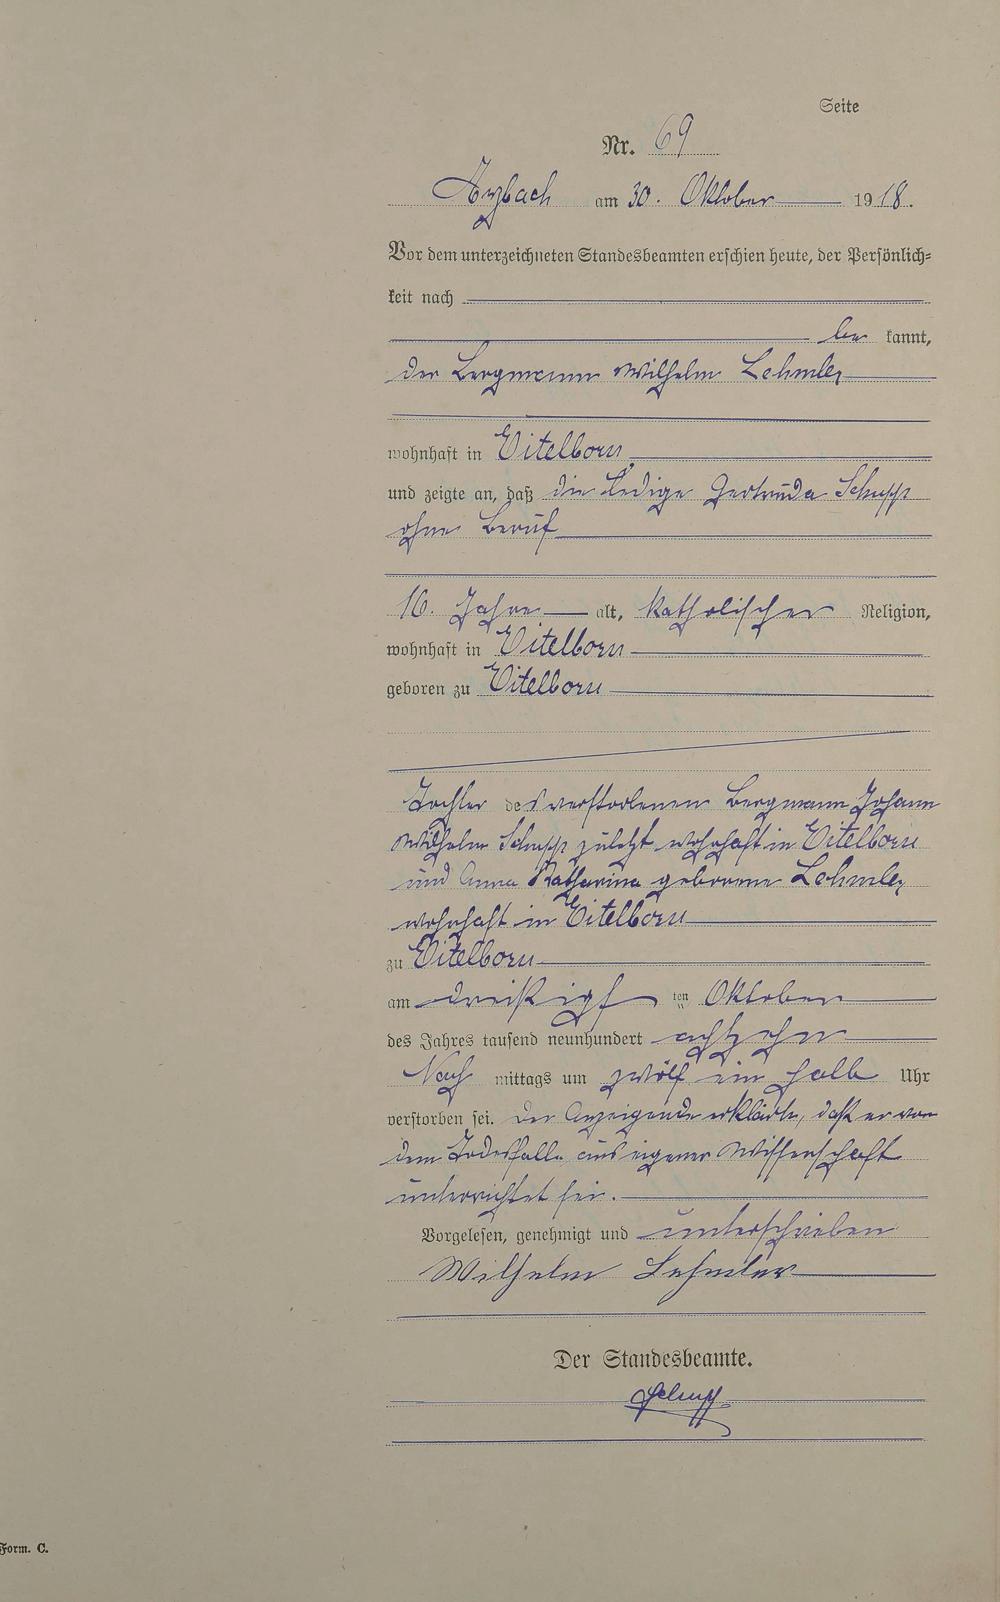 Seite
Nr. 69
Arzbach am 30. Oktober 1918.
Vor dem unterzeichneten Standesbeamten erschien heute, der Persönlich=
keit nach
be kannt,
der Bergmann Wilhelm Lehmler
wohnhaft in Eitelborn
und zeigte an, daß die ledige Gertruda Schupp
ohne Beruf
16. Jahre alt, katholischer Religion,
wohnhaft in Eitelborn
geboren zu Eitelborn
Tochter des verstorbenen Bergmann Johann
Wilhelm Schupp zuletzt wohnhaft in Eitelborn
und Anna Katharina geborene Lehmler
wohnhaft in Eitelborn
zu Eitelborn
am dreißigsten Oktober
des Jahres tausend neunhundert achtzehn
Nach mittags um zwölf ein halb Uhr
verstorben sei. Der Anzeigende erklärte, daß er von
dem Todesfalle aus eigener Wissenschaft
unterrichtet sei.
Vorgelesen, genehmigt und unterschrieben
Wilhelm Lehmler
Der Standesbeamte.
Schupp
Form. C.